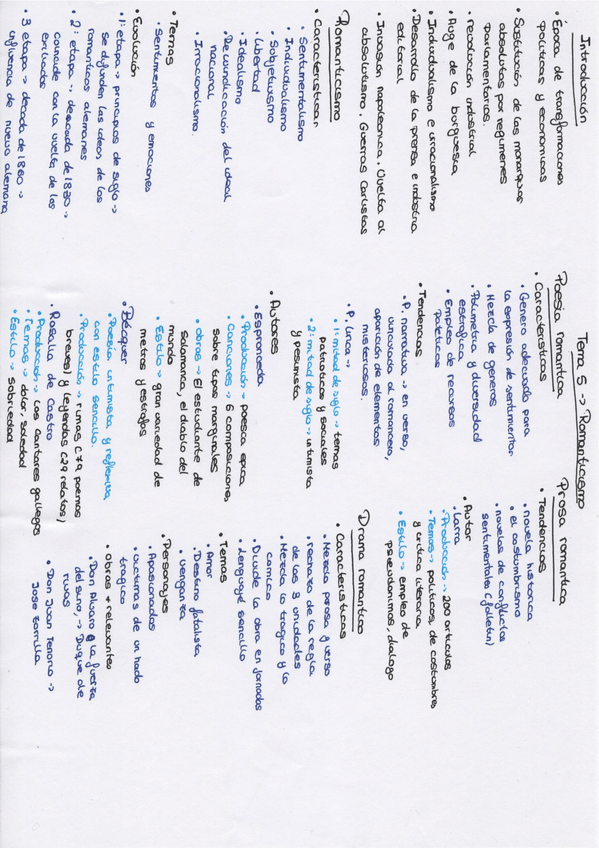 Tema 5 -> Romanticismo
Introducción
• Época de transformaciones
políticas y económicas
• Sustitución de las monarquías
absolutas por regímenes
parlamentarios.
• revolución industrial
• Auge de la burguesía
• Individualismo e irracionalismo
• Desarrollo de la prensa e industria
editorial
• Invasión napoleónica. Vuelta al
absolutismo. Guerras Carlistas
Romanticismo
• Características
• Sentimentalismo
• Individualismo
• Subjetivismo
• Libertad
• Idealismo
• Reivindicación del ideal
nacional
• Irracionalismo
• Temas
• Sentimientos y emociones
• Evolución
• 1ª etapa -> principios de siglo ->
se difunden las ideas de los
románticos alemanes
• 2ª etapa -> década de 1830 ->
coincide con la vuelta de los
exiliados
• 3 etapa -> década de 1860 ->
influencia de nuevo alemana
Poesía romántica
• Características
• Género adecuado para
la expresión de sentimientos
• Mezcla de géneros
• Polimetría y diversidad
estrófica
• Empleo de recursos
patéticos
• Tendencias
• P. narrativa -> en verso,
vinculado al romancero,
aparición de elementos
misteriosos.
• P. lírica ->
• 1ª mitad de siglo -> temas
patrióticos y sociales
• 2ª mitad de siglo -> intimista
y pesimista
• Autores
• Espronceda
• Producción -> poesía épica
• Canciones -> 6 composiciones,
sobre tipos marginales
• obras -> El estudiante de
salamanca, el diablo del
mundo
• Estilo -> gran variedad de
metros y estrofas
• Bécquer
• Poesía intimista y reflexiva
con estilo sencillo.
• Producción -> rimas (79 poemas
breves) y leyendas (29 relatos)
• Rosalía de Castro
• Producción -> los cantares gallegos
• Temas -> dolor, soledad
• Estilo -> sobriedad
Prosa romántica
• Tendencias
• novela histórica
• el costumbrismo
• novelas de conflictos
sentimentales (folletín)
• Autor
• Larra
• Producción -> 200 artículos
• Temas -> políticos, de costumbres
y crítica literaria
• Estilo -> empleo de
pseudónimos, diálogo
Drama romántico
• Características
• Mezcla prosa y verso
• rechazo de la regla
de las 3 unidades
• Mezcla lo trágico y lo
cómico
• Divide la obra en jornadas
• Lenguaje sencillo
• Temas
• Amor
• Destino fatalista
• venganza
• Personajes
• Apasionados
• víctimas de un hado
trágico
• Obras + relevantes
• Don Alvaro o la fuerza
del sino -> Duque de
rivas
• Don Juan Tenorio ->
Jose Zorrilla